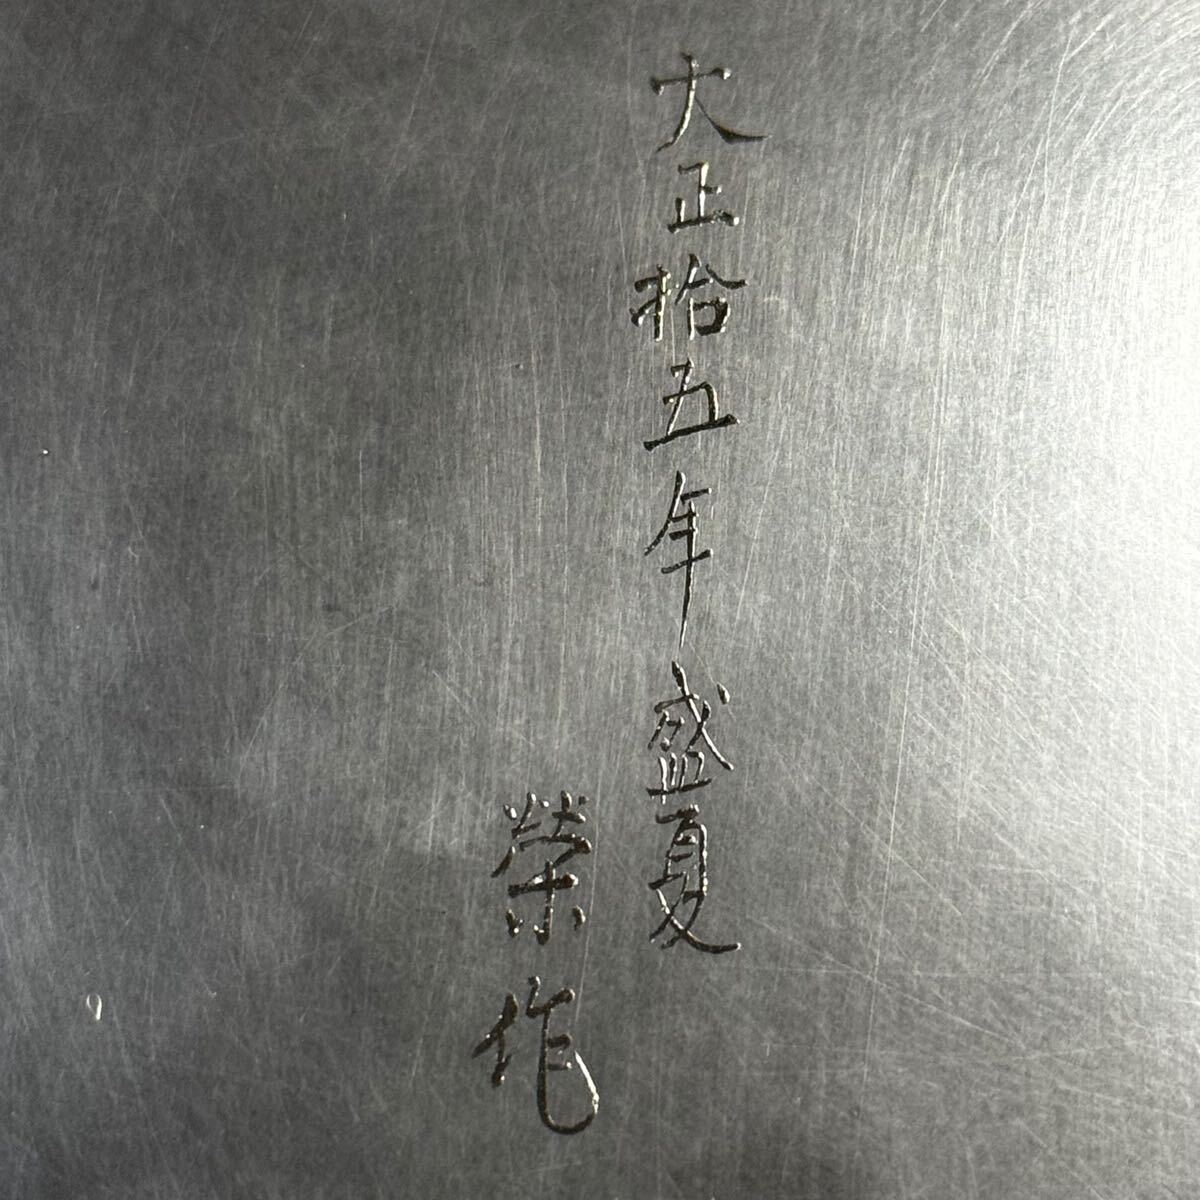 大正拾五年盛夏
榮作